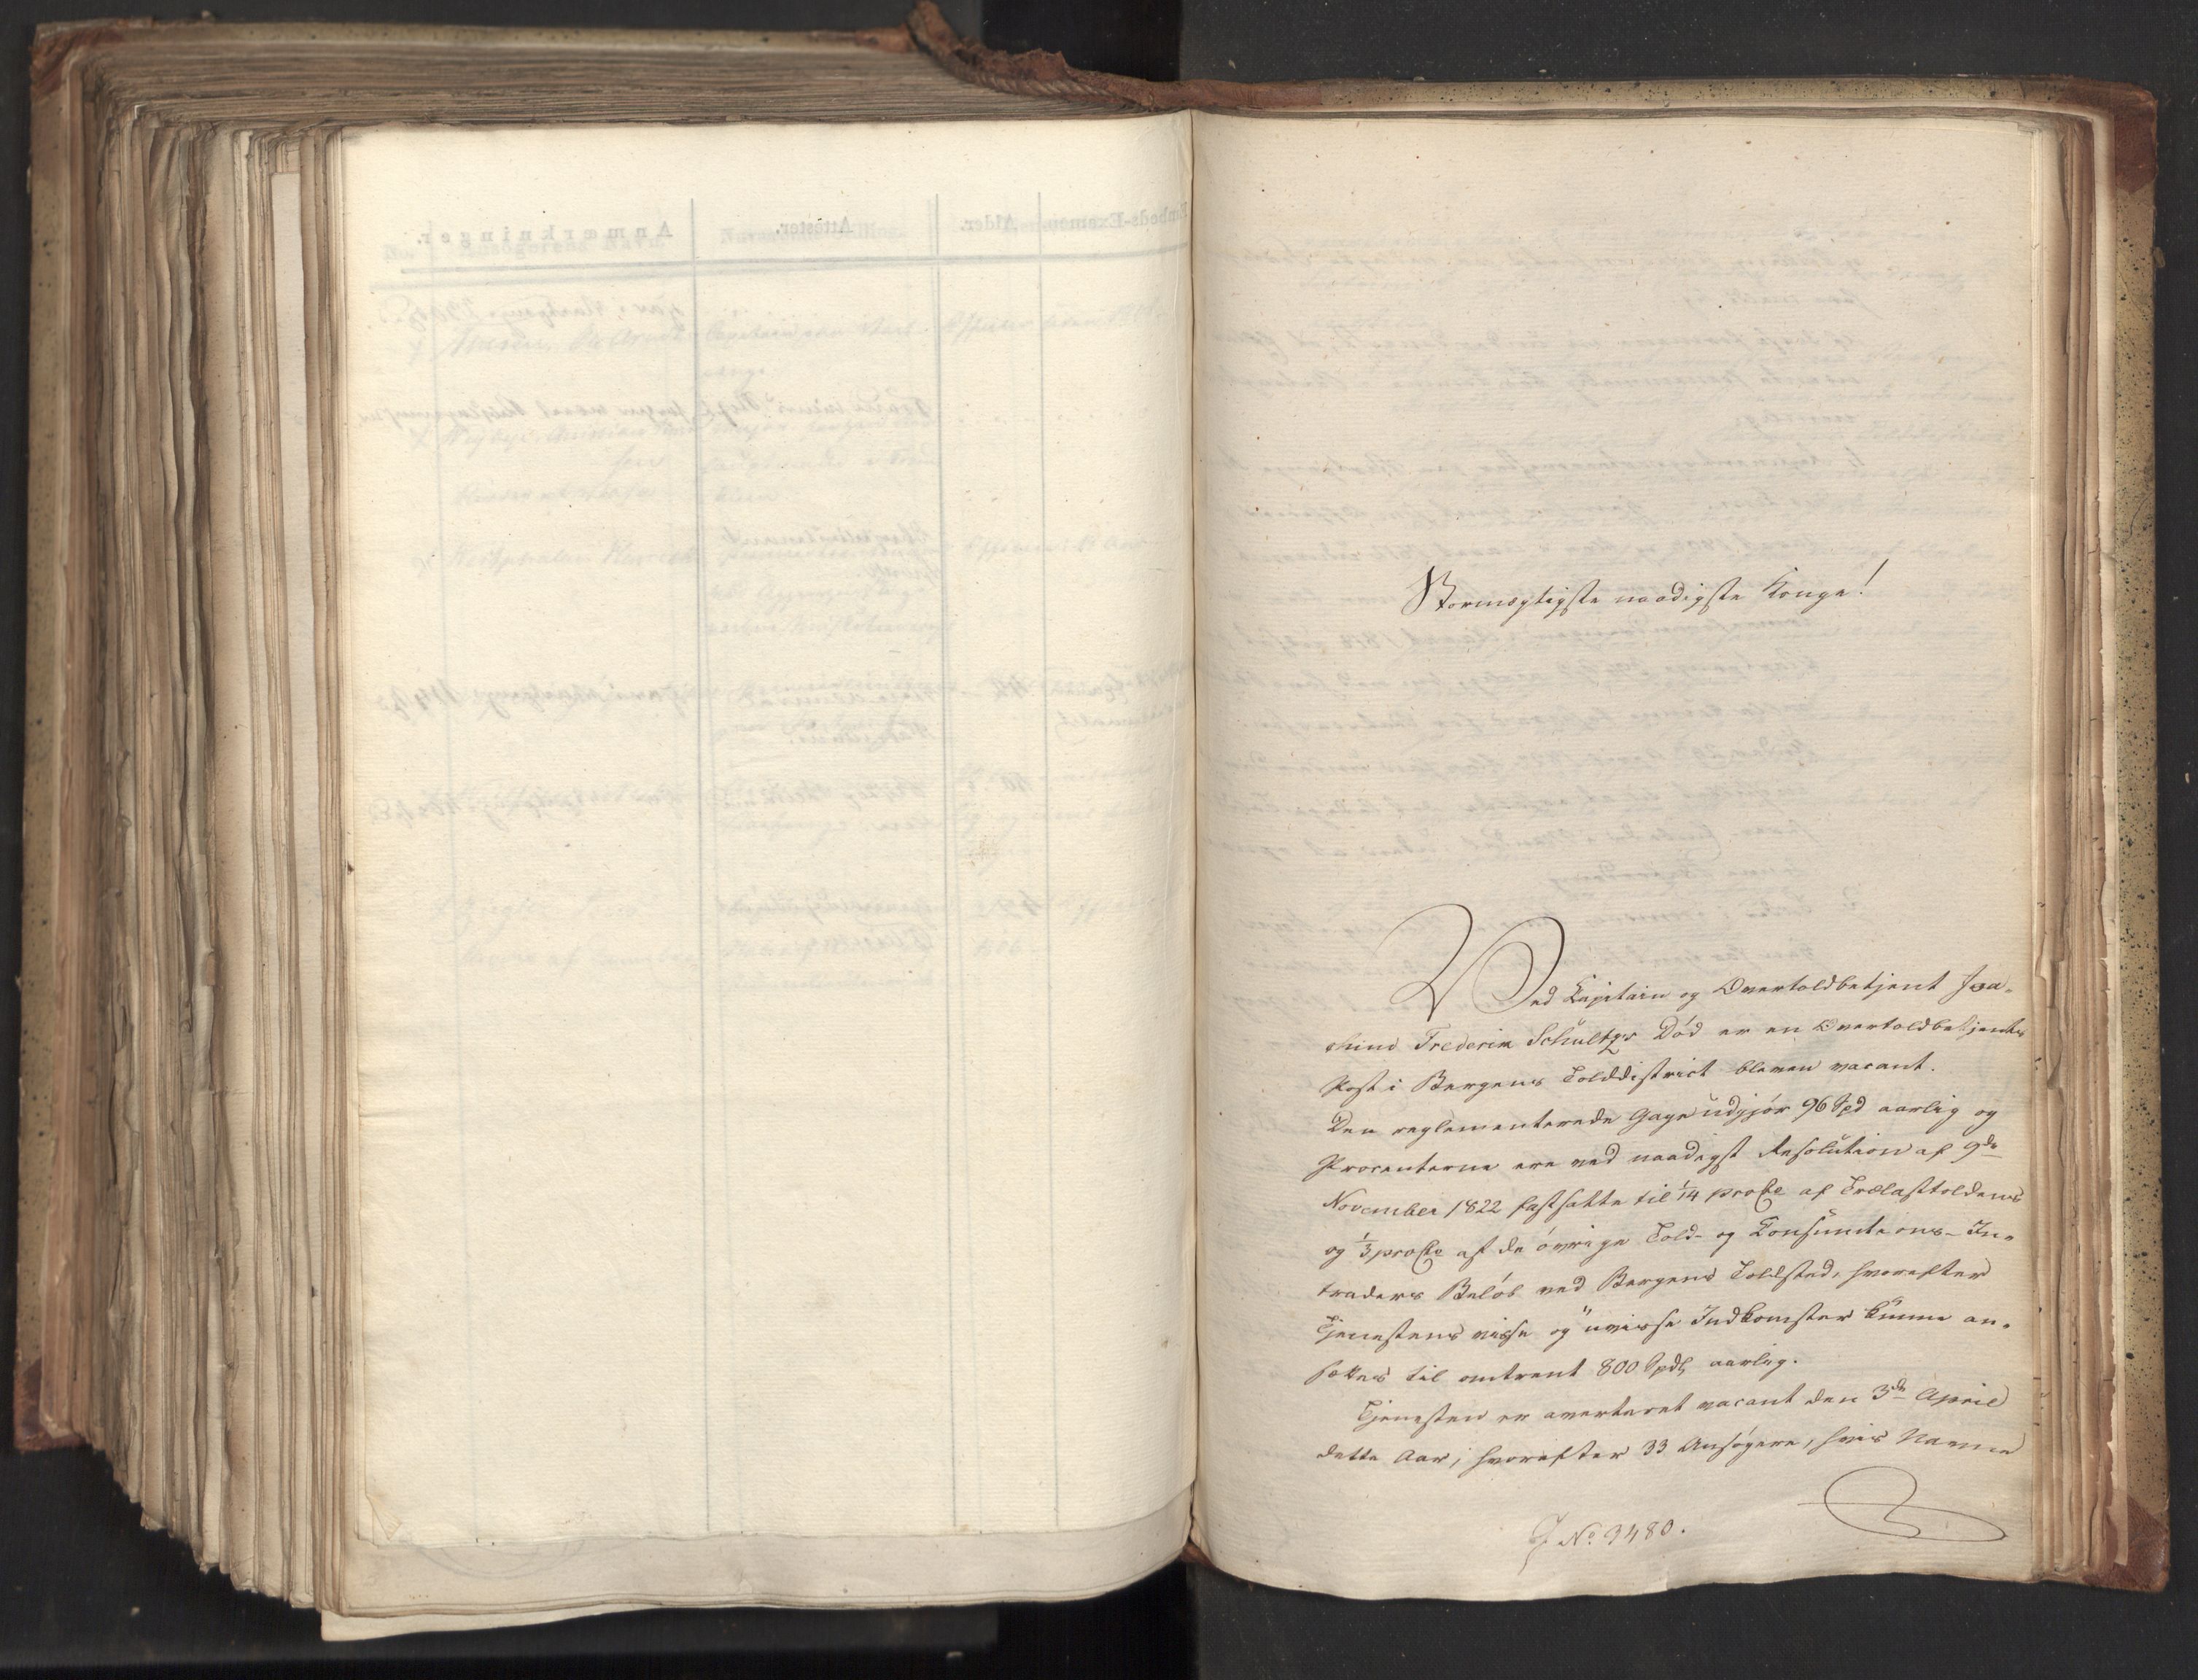 Stormægtigste naadigste Konge!
Ved Capitain og Overtoldbetjent Joa-
chim Frederik Schultzes Död er en Overtoldbetjents
Post i Bergens Tolddistrict bleven vacant.
Den reglementerede Gage udgjör 96 Spd aarlig og
Procenterne ere ved naadigst Resolution af 9de
November 1822 fastsatte til 1/14 proCto af Trælasttoldens
og 1/3 proCto af de övrige Told- og Consumtions-In-
traders Belöb ved Bergens Toldsted, hvorefter
Tjenestens visse og uvisse Indkomster kunne an-
sættes til omtrent 800 Spdlr aarlig.
Tjenesten er averteret vacant den 3de April
dette Aar, hvorefter 33 Ansögere, hvis Navne
J No 3480.